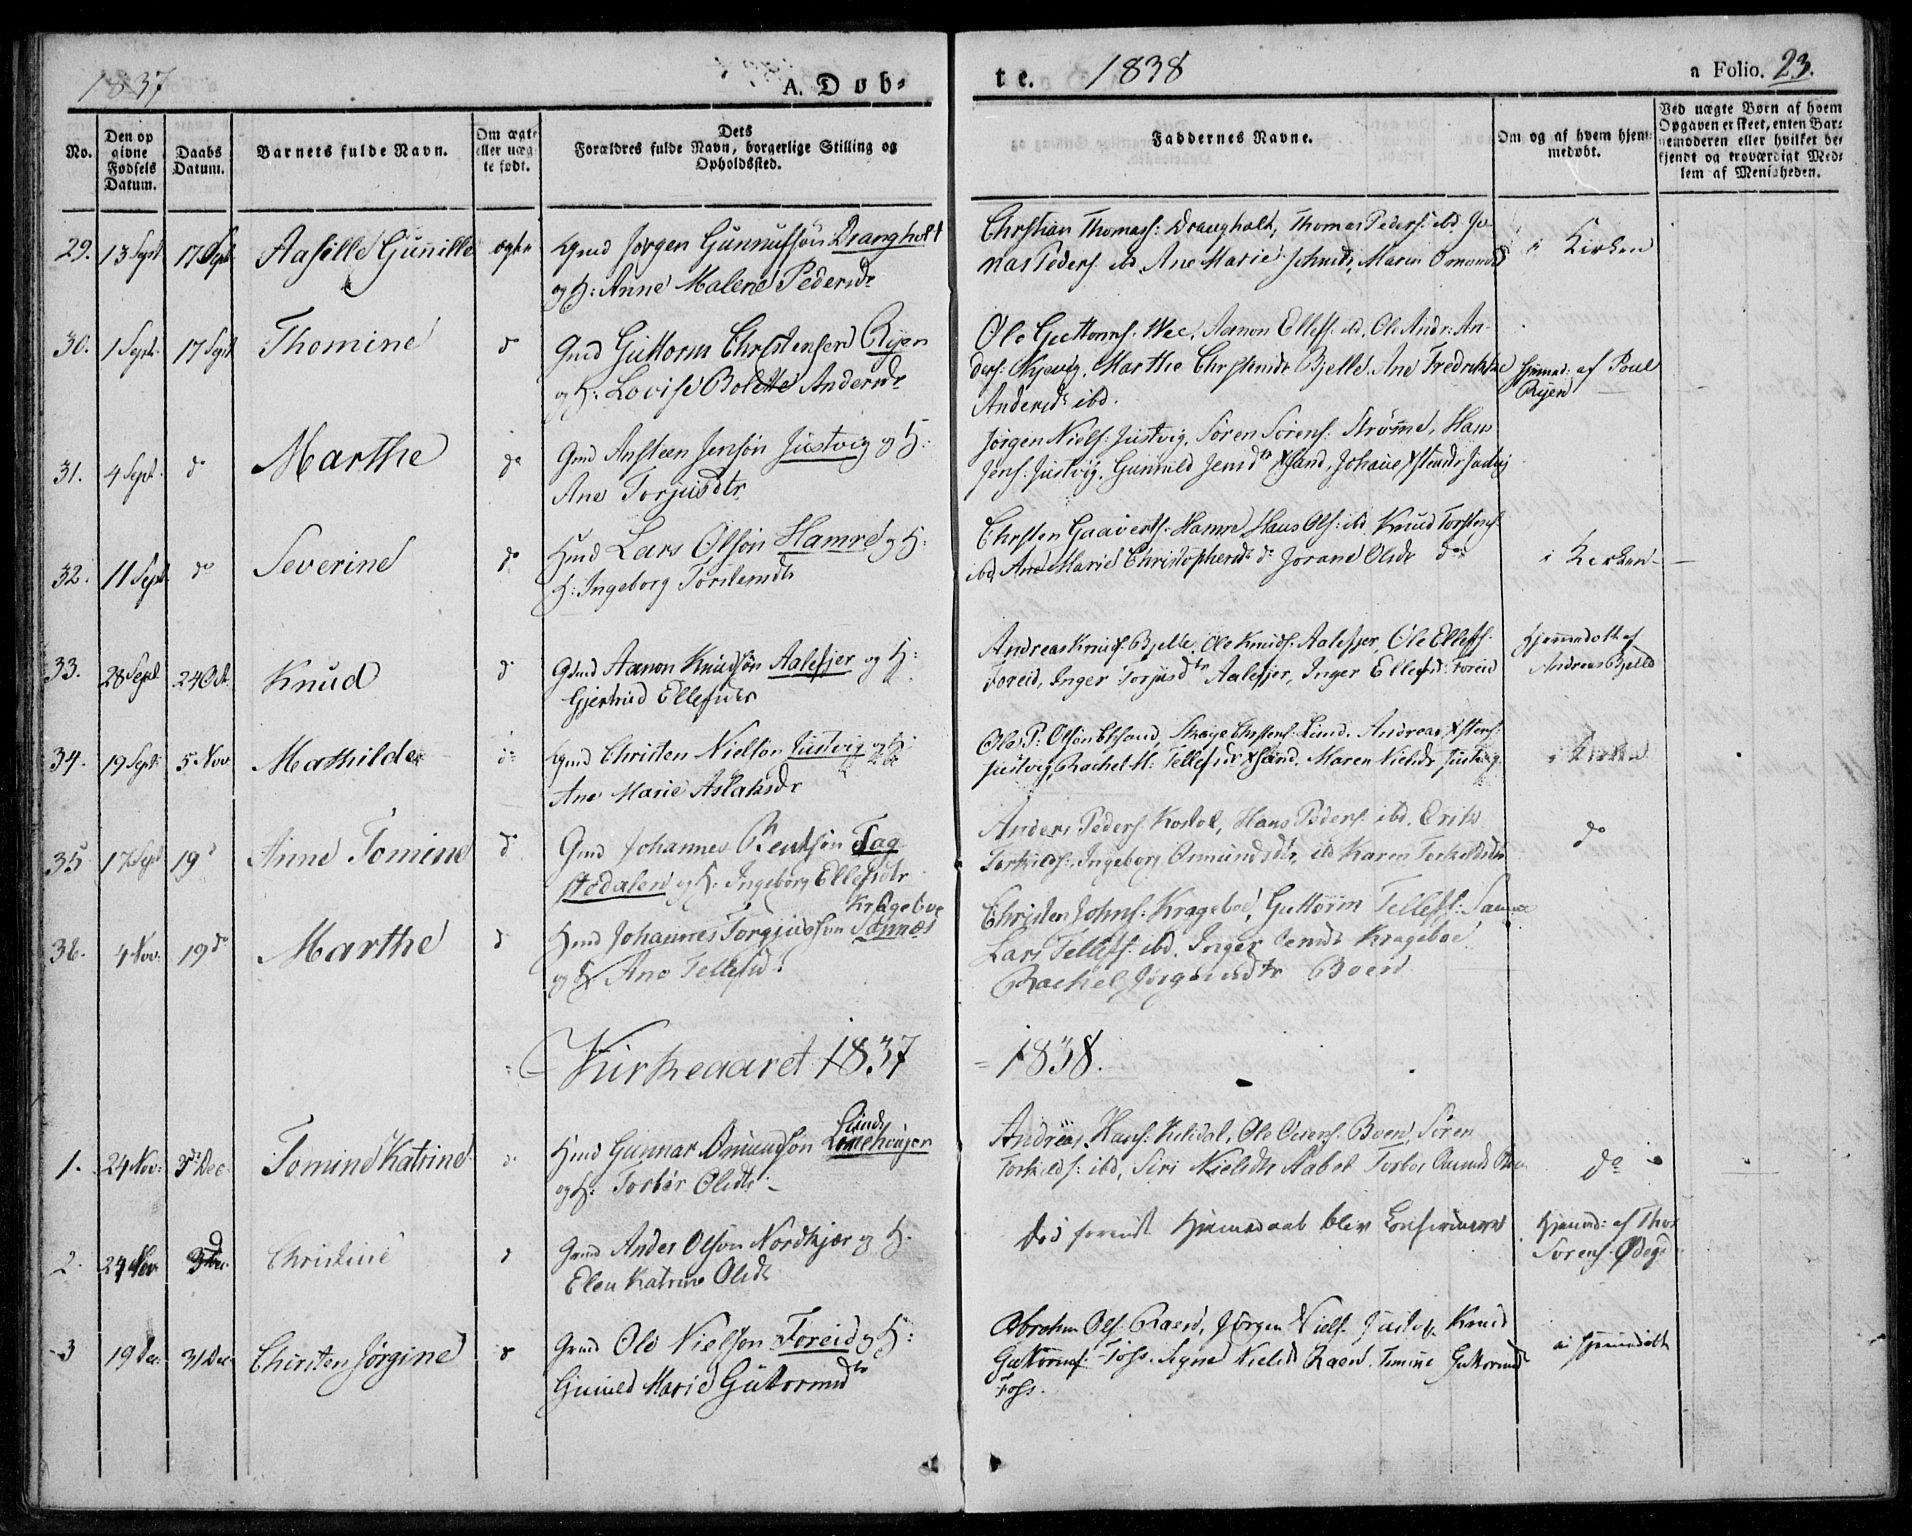 1837
A. Døb-
te.
1838
a Folio. 23.
No.
Den op
givne
Fødsels
Datum.
Daabs
Datum.
Barnets fulde Navn.
Om ægte
eller uæg-
te født.
Dets
Forældres fulde Navn, borgerlige Stilling og
Opholdssted.
Faddernes Navne.
Om og af hvem hjem-
medøbt.
Ved uægte Børn af hvem
Opgaven er skeet, enten Bar-
nemoderen eller hvilket be-
kjendt og troværdigt Med-
lem af Menigheden.
29. 13 Sept 17 Sept Aasille Gunnille ægte Gmd Jørgen Gunnufsøn Drangholt
og H: Anne Malene Pedersdr
Christian Thomass: Drangholt, Thomas Peders: ibd Jo-
nas Peders: ibd Ane Marie Schmidt, Maren Omunds
i Kirken
30. 1 Sept. 17 Sept Thomine do Gmd Guttorm Christensen Ryen
og H: Lovise Bolette Andersdr
Ole Guttorms: Wee, Aanon Ellefs: ibd, Ole Andr: An-
ders: Kjevig, Marthe Christensdr Bjelle, Ane Fredrikke
Andersdr ibd.
Hjemmd: af Poul
Ryen
31. 4 Sept do Marthe do Gmd Ansteen Jensøn Justvig og H:
Ane Torjusdtr
Jørgen Niels: Justvig, Søren Sørens: Strømme, Hans
Jens: Justvig, Gunnild Jensdtr Xsand, Johanne Xstensdr Justvig
32. 11 Sept do Severine do Hmd Lars Olsøn Hamre og H:
H: Ingeborg Torstensdtr
Chrsten Gaaverts: Hamre, Hans Ols: ibd Knud Torstens:
ibd Ane Marie Christophersdr do Jorand Olsdr do
i Kirken
33. 28 Sept 24 Oct. Knud do Gmd Aanon Knudsøn Aalefjer og H:
Gjertrud Ellefsdtr
Andreas Knuds: Bjelle, Ole Knuds: Aalefjer, Ole Ellefs:
Foreid, Inger Torjusdtr Aalefjer, Inger Ellefsd: Foreid
Hjemmedøbt af
Andreas Bjelle
34. 19 Sept: 5 Nov Mathilde do Gmd Christen Nielsøn Justvig og H:
Ane Marie Aslaksdr
Ole P: Olsøn Chsand, Christens: Lund, Andreas Xstens:
Justvig, Rachel M: Tellefsdr Xsand, Maren Nielsdr Justvig
i Kirken
35 17 Sept 19 d Anne Tomine do Gmd Johannes Bentsøn Fag-
stodalen og H: Ingeborg Ellefsdtr
Anders Peders: Kostøl, Hans Peders: ibd. Erik
Terkilds: Ingeborg Omundsdtr, ibd Karen Terkildsdtr
do
36. 4 Nov. 19 do Marthe do Hmd Johannes Torgjussøn Sannæs
Kragebve
og H Ane Tellefsd:
Christen Johns: Kragebve, Guttorm Tellefs:
Lars Tellefs: ibd. Inger Jensdr Kragebve
Rachel Jørgensdtr Boen
Kirkeaaret 1837
= 1838.
1. 24 Nov: 3 Dec Tomine Katrine do Hmd Gunnar Omundsøn
og H: Torbør Olsdtr
Andreas Hans: Ole Boen, Søren
Torkilds: ibd, Siri Nielsdtr Aabel Torbor Omunds Boen
do
2. 24 Nov 3 d Christine do Gmd Anders Olsøn Nordkjær og H.
Elen Katrine Olsdr
Hjemmedaab blev Confirmeret
Hjemmd: af Thor
Sørens: Ødeg
3 19 Dec. 31 Dec Chirsten Jørgine do Gmd Ole Nielsøn Foreid og H:
Gunild Marie Guttormsdtr
Abraham Ols: Raen, Jørgen Niels: Justvig Knud
Guttorms: Foss. Signe Nielsd Raen. Tomine Guttormsd
Foss.
i hjemmedøbt